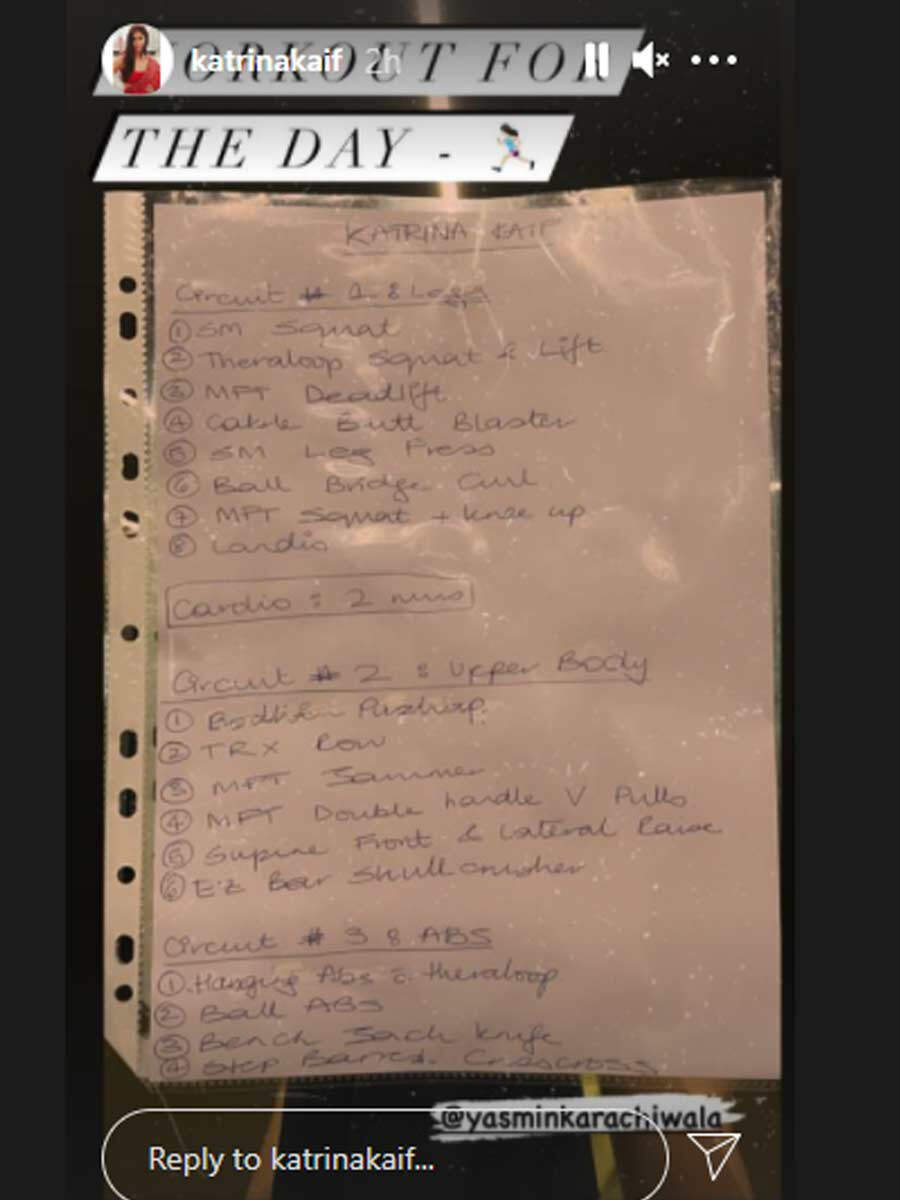 WORKOUT FOR
katrinakaif 2h
THE DAY -
KATRINA KAIF
Circuit # 1 : Legs
① SM Squat
② Theraloop Squat & Lift
③ MFT Deadlift
④ Cable Butt Blaster
⑤ SM Leg Press
⑥ Ball Bridge Curl
⑦ MFT Squat + knee up
⑧ Cardio
Cardio : 2 mins
Circuit # 2 : Upper Body
① Pushup
② TRX Row
③ MFT Jammer
④ MFT Double handle V Pulls
⑤ Supine Front & Lateral Raise
⑥ EZ Bar Skull crusher
Circuit # 3 : ABS
① Hanging Abs c̄ theraloop
② Ball ABS
③ Bench Jack knife
④ Step Crisscross
@yasminkarachiwala
Reply to katrinakaif...